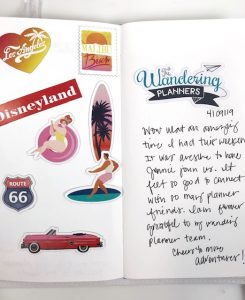 Los Angeles
MALIBU
Beach
Disneyland
ROUTE
66
The
Wandering
PLANNERS
4/09/19
Wow what an amazing
time I had this weekend
It was awesome to have
Jennie join us. It
felt so good to connect
with so many planner
friends. I am forever
grateful to my wandering
planner team.
Cheers to more
adventures!